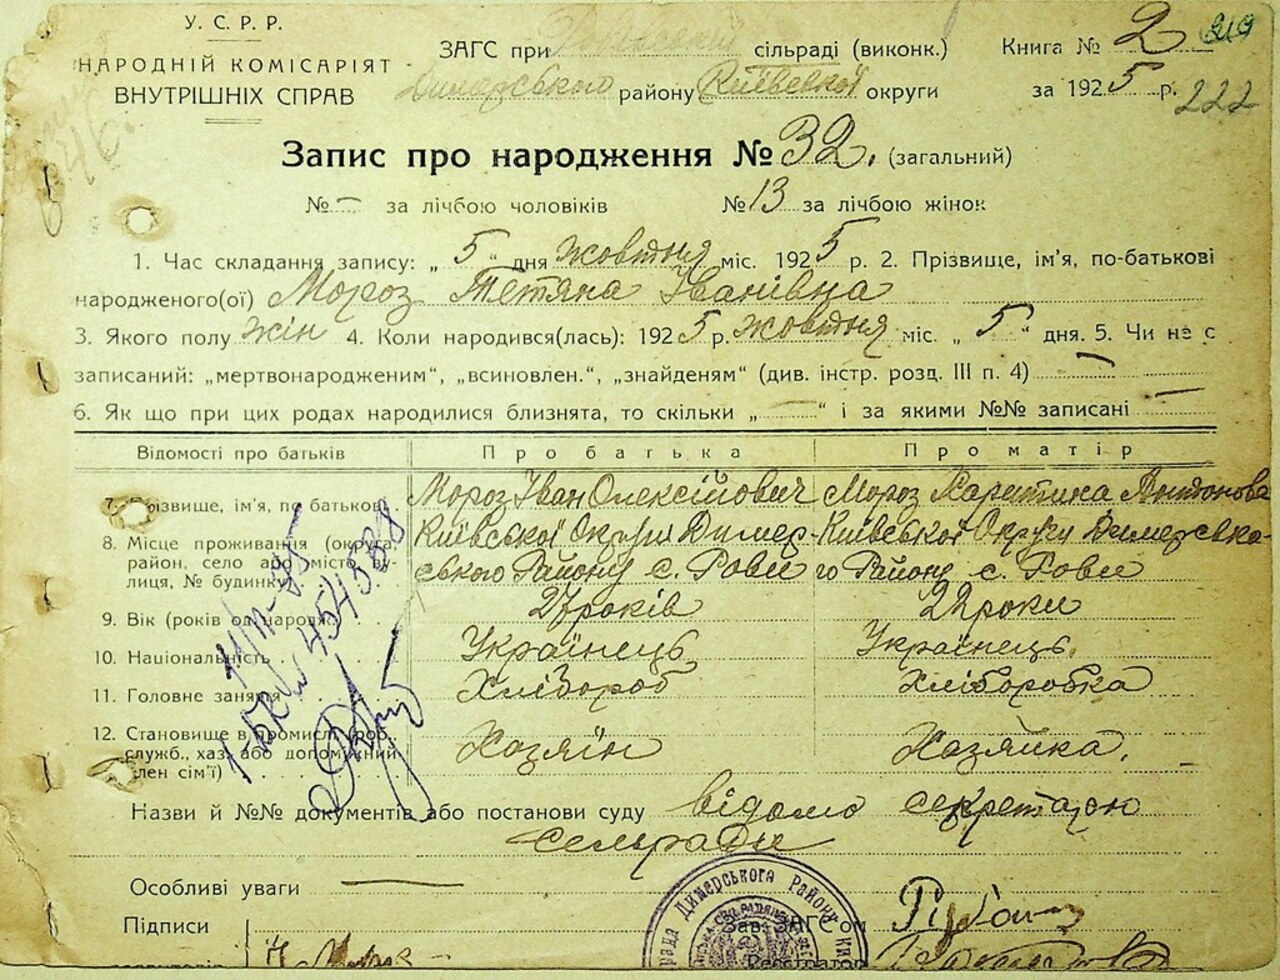 У. С. Р. Р.
НАРОДНІЙ КОМІСАРІЯТ
ВНУТРІШНІХ СПРАВ
ЗАГС при сільраді (виконк.) Книга № 2 219
Димерського району Київської округи за 1925 р. 222
Запис про народження № 32. (загальний)
№ – за лічбою чоловіків № 13 за лічбою жінок
1. Час складання запису: „ 5 “ дня жовтня міс. 1925 р. 2. Прізвище, ім'я, по-батькові
народженого(ої) Мороз Тетяна Іванівна
3. Якого полу жін 4. Коли народився(лась): 1925 р. жовтня міс. „ 5 “ дня. 5. Чи не є
записаний: „мертвонародженим“, „всиновлен.“, „знайденям“ (див. інстр. розд. III п. 4) —
6. Як що при цих родах народилися близнята, то скільки „ — “ і за якими №№ записані —
Відомості про батьків Про батька Про матір
7. Прізвище, ім'я, по батькові Мороз Іван Олексійович Мороз Антонова
8. Місце проживання (округа, Київської Округи Димер- Київської Округи Димерсько-
район, село або місто, ву- ського Району с. Рови го Району с. Рови
лиця, № будинку
9. Вік (років од народж.) 27 років 22 роки
10. Національність Українець Українець.
11. Головне заняття Хлібороб Хліборобка
12. Становище в промислі (роб., Хазяїн Хазяйка.
служб., хаз. або допоміжний
член сім'ї)
454388
Назви й №№ документів або постанови суду відомо секретарю
сельради
Особливі уваги —
Підписи Зав. ЗАГС'ом
Реєстратор
Димерського Району